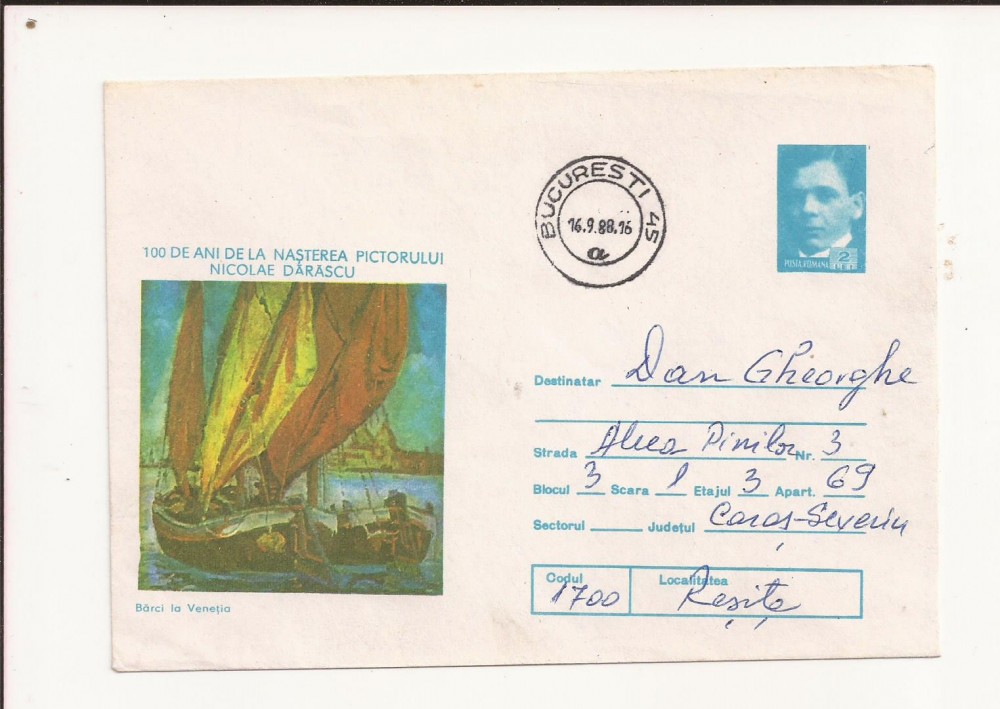 100 DE ANI DE LA NAȘTEREA PICTORULUI
NICOLAE DĂRĂSCU
Bărci la Veneția
BUCUREȘTI 45
16.9.88.16
a
POSTA ROMANA 2 LEI
Destinatar Dan Gheorghe
Strada Aleea Pinilor Nr. 3
Blocul 3 Scara 1 Etajul 3 Apart. 69
Sectorul Județul Caraș-Severin
Codul Localitatea
1700 Reșița